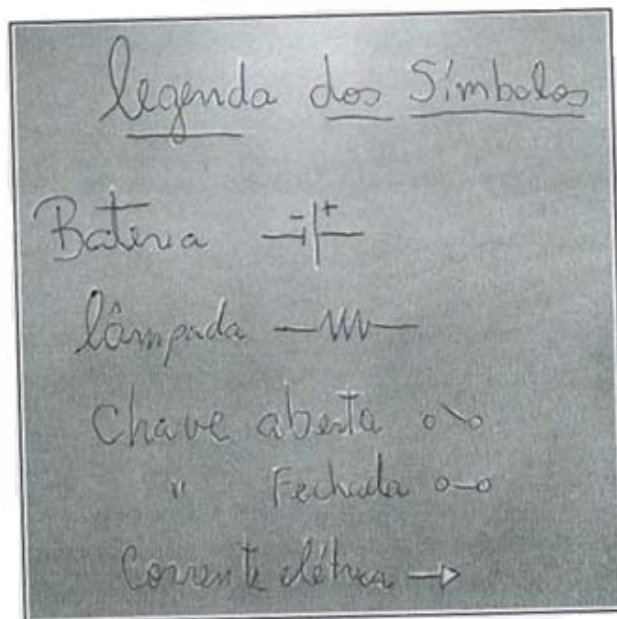 legenda dos Símbolos
Bateria - +
lâmpada
Chave aberta
" Fechada
Corrente elétrica